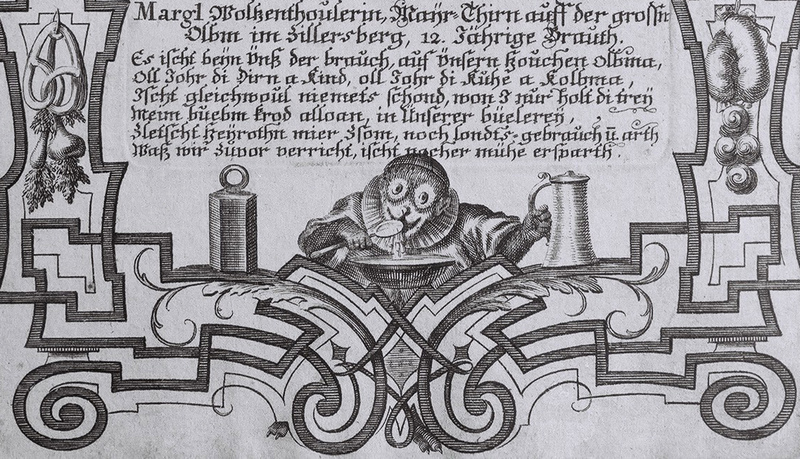 Margl Wolkenthoulerin, Mayr-Thirn auff der grossn
Olbm im Zillersberg, 12. Jährige Brauth.
Es ischt beÿn ÿnß der brauch, auf ÿnsern houchen Olbma,
Oll Johr di Dirn a Kind, oll Johr di Kühe a Kolbma,
Ischt gleichwoul niemets schond, won I nur holt di treÿ
meim buebm krod alloan, in Unserer büelereÿ,
Zletscht heÿrothn mier Zsom, noch londts-gebrauch ü. arth
Waß wir Züvor verricht, ischt nocher mühe erspahrth.